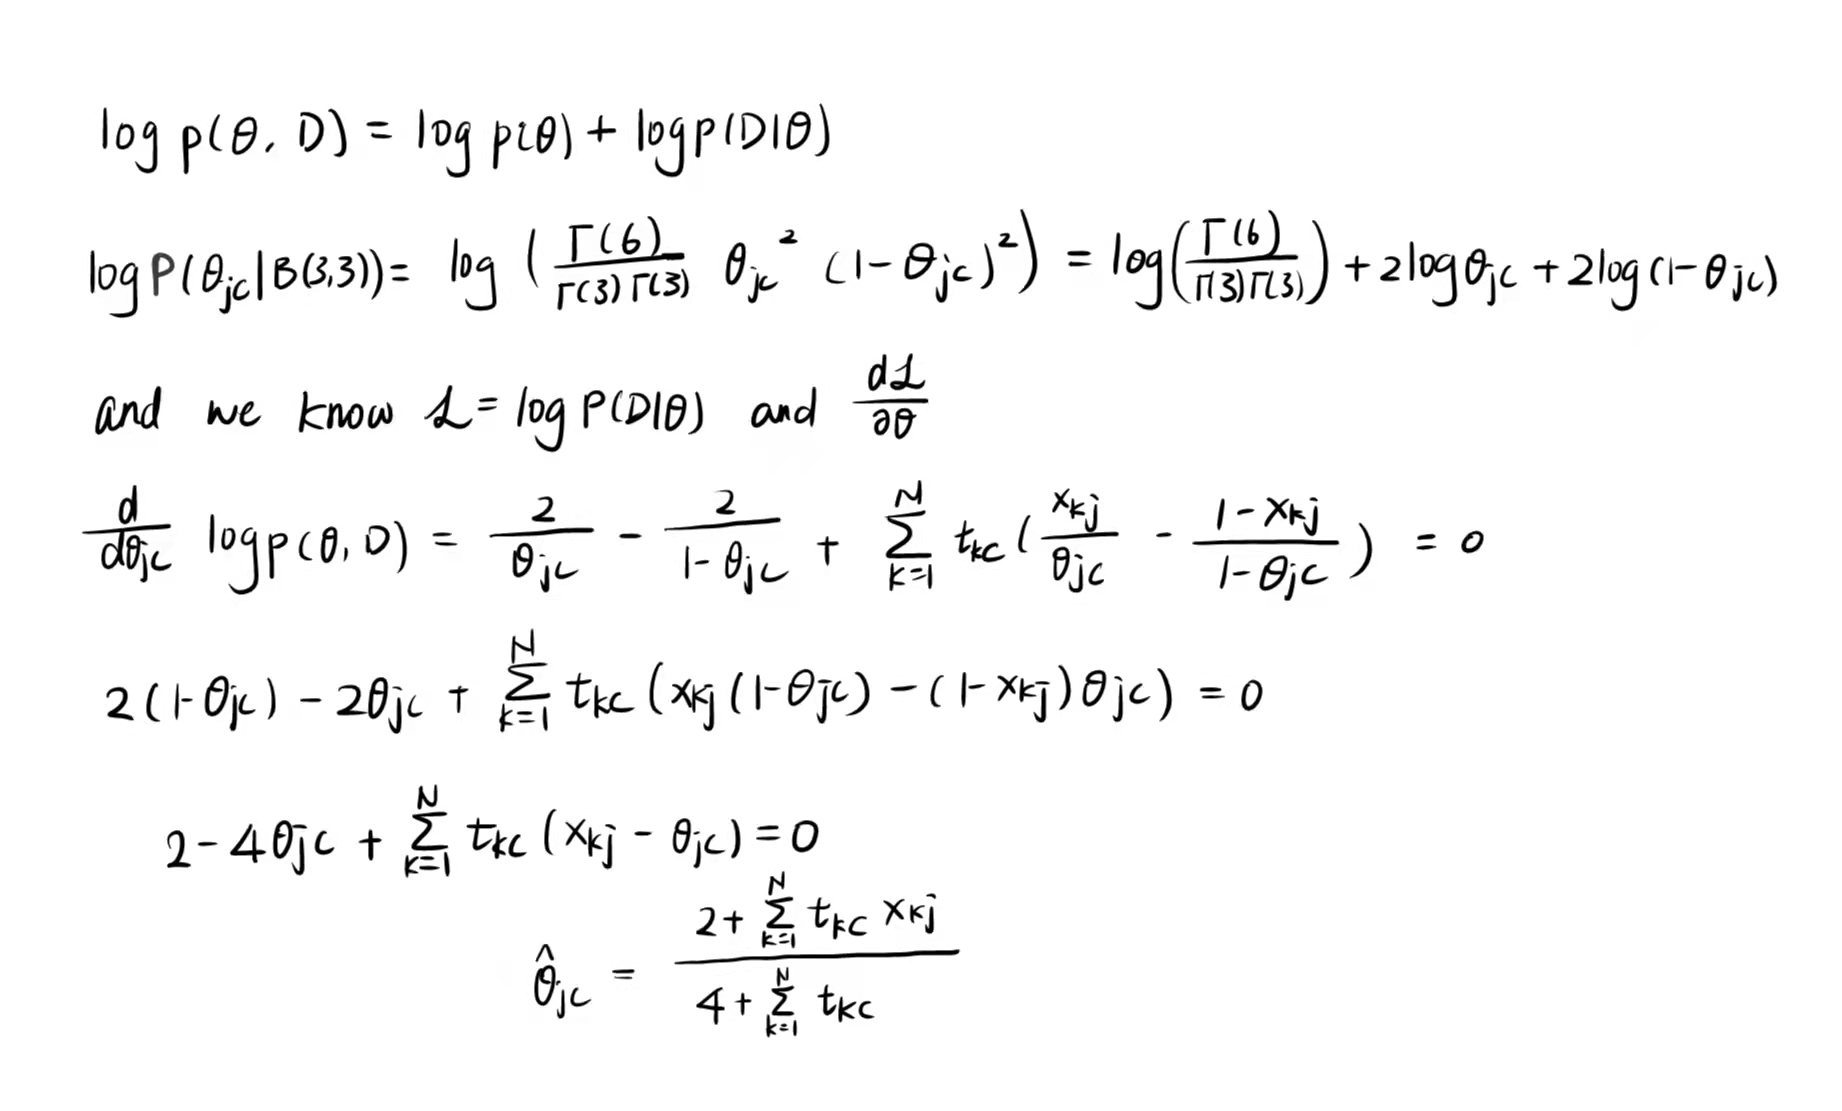 log p(θ, D) = log p(θ) + log p(D|θ)
log P(θ_jc | B(3,3)) = log ( Γ(6) / Γ(3)Γ(3) θ_jc^2 (1-θ_jc)^2 ) = log( Γ(6) / Γ(3)Γ(3) ) + 2 log θ_jc + 2 log (1-θ_jc)
and we know ℒ = log P(D|θ) and dℒ/∂θ
d/dθ_jc log p(θ, D) = 2/θ_jc - 2/(1-θ_jc) + Σ_{k=1}^{N} t_kc ( x_kj/θ_jc - (1-x_kj)/(1-θ_jc) ) = 0
2(1-θ_jc) - 2θ_jc + Σ_{k=1}^{N} t_kc ( x_kj (1-θ_jc) - (1-x_kj) θ_jc ) = 0
2 - 4θ_jc + Σ_{k=1}^{N} t_kc ( x_kj - θ_jc ) = 0
θ̂_jc = (2 + Σ_{k=1}^{N} t_kc x_kj) / (4 + Σ_{k=1}^{N} t_kc)